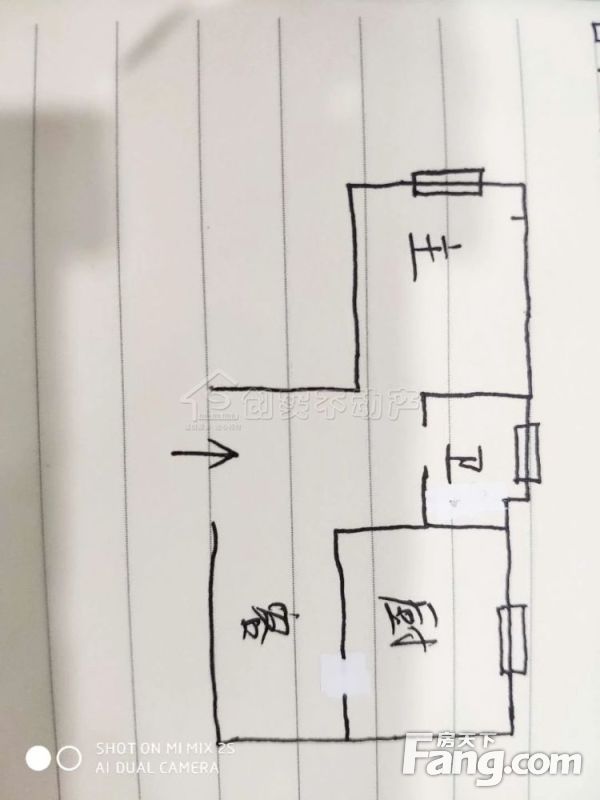 主
创奕不动产
卫
客
厨
SHOT ON MI MIX 2S
AI DUAL CAMERA
房天下
Fang.com